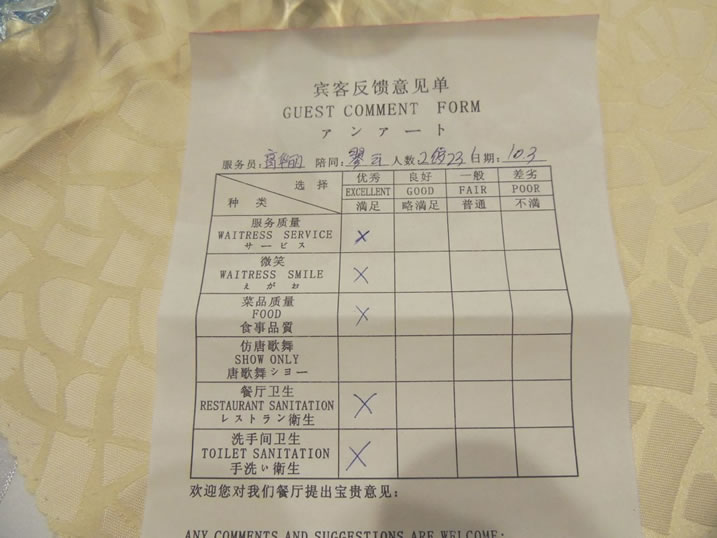 宾客反馈意见单
GUEST COMMENT FORM
アンァート
服务员: 陪同: 人数 日期: 10.3
选择
种类
优秀 良好 一般 差劣
EXCELLENT GOOD FAIR POOR
满足 略满足 普通 不满
服务质量
WAITRESS SERVICE X
サービス
微笑
WAITRESS SMILE X
えがお
菜品质量
FOOD X
食事品質
仿唐歌舞
SHOW ONLY
唐歌舞ショー
餐厅卫生
RESTAURANT SANITATION X
レストラン衛生
洗手间卫生
TOILET SANITATION X
手洗い衛生
欢迎您对我们餐厅提出宝贵意见:
ANY COMMENTS AND SUGGESTIONS ARE WELCOME: